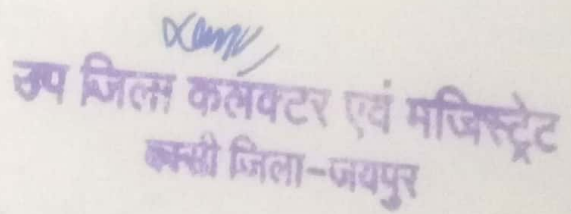 उप जिला कलक्टर एवं मजिस्ट्रेट
बस्सी जिला-जयपुर